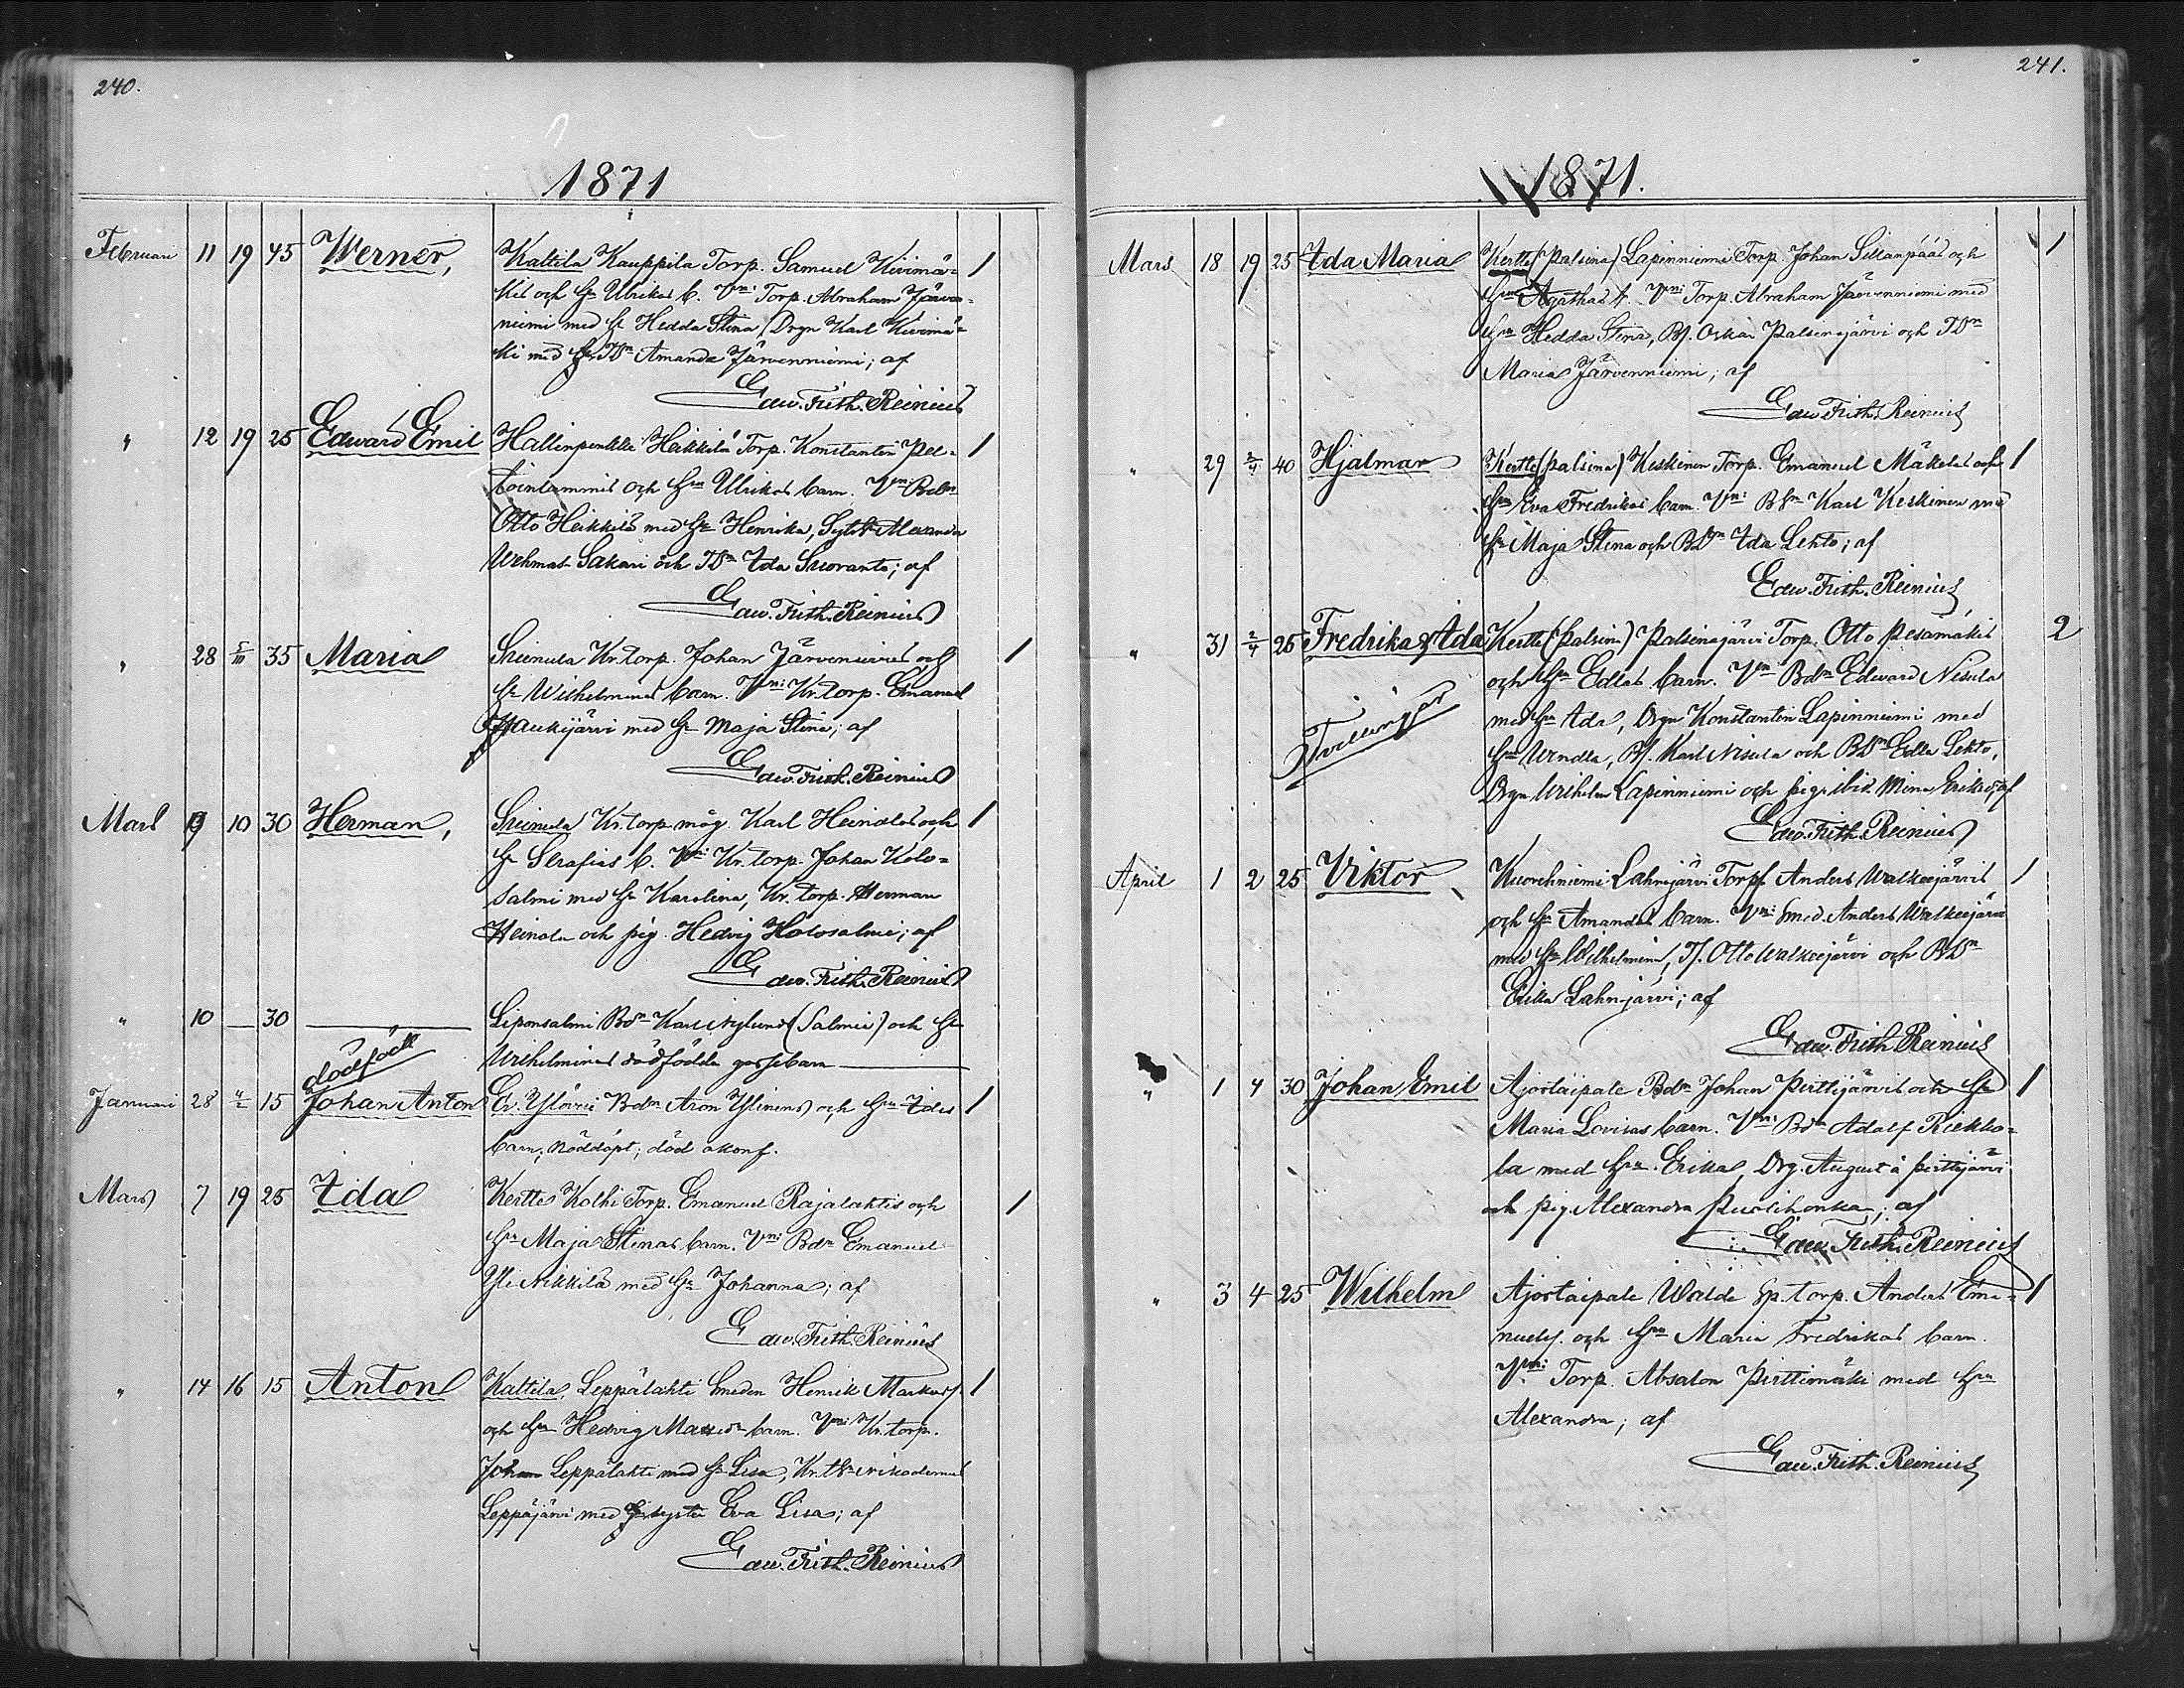 240.
1871
Februari 11 19 45 Werner, Kaltila Kauppila Torp. Samuel Kivimä= 1
kis och Hu Ulrikas b. Vni: Torp. Abraham Järven=
niemi med H Hedda Stina, Drgn Karl Kivimä=
ki med TDr Amanda Järvenniemi; af
Edw. Frith. Reinius
" 12 19 25 Edward Emil Hallinpenkki Heikkilä Torp. Konstantin Pel= 1
toinlammis och Hu Ulrikas barn. Vni: Bdn
Otto Heikkilä med Hu Henrika, Alexander
Wehmas Sakari och TDr Ida Suoranta; af
Edw. Frith. Reinius
" 28 5/III 35 Maria Kr. torp. Johan Järvensivus och 1
Hu Wilhelminas barn. Vni: Kr. torp. Emanuel
Haukijärvi med Hu Maja Stina; af
Edw. Frith. Reinius
Mars 9 10 30 Herman, Kr. torp. måg. Karl Heinolas och 1
Hu Serafias b. Vni: Kr. torp. Johan Kolo=
salmi med Hu Karolina, Kr. torp. Herman
Heinola och pig. Hedvig Holosalmi; af
Edw. Frith. Reinius
" 10 — 30 — Liponsalmi Bdn Karl Nylund (Salmis) och Hu
dödfödt Wilhelminas dödfödda gossebarn —
Januari 28 4/2 15 Johan Anton Ylövesi Bdn Aron Ylinens och Hu Idas 1
barn, nöddöpt; död okonf.
Mars 7 19 25 Ida Kertte Kolhi Torp. Emanuel Rajalahtis och 1
Hu Maja Stinas barn. Vni: Bdn Emanuel
Yli Nikkilä med Hu Johanna; af
Edw. Frith. Reinius
" 14 16 15 Anton Kaltila, Leppälahti Smeden Henrik Markuss. 1
och Hu Hedvig barn. Vni: Kr. torp.
Johan Leppälahti med Hu Lisa, Kr. Nikodemus
Leppäjärvi med syster Eva Lisa; af
Edw. Frith. Reinius
241.
1871.
Mars 18 19 25 Ida Maria Kertte (Palsina) Lapinniemi Torp. Johan Sillanpääs och 1
Hu Agathas b. Vni: Torp. Abraham Järvenniemi med
Hu Hedda Stina, Bs. Oskar Palsinajärvi och TDr
Maria Järvenniemi; af
Edw. Frith. Reinius
" 29 2/4 40 Hjalmar Kertte (Palsina) Keskinen Torp. Emanuel Mäkeläs och 1
Hu Eva Fredrikas barn. Vni: BSn Karl Keskinen med
Hu Maja Stina och BDr Ida Lehto; af
Edw. Frith. Reinius
" 31 2/4 25 Fredrika & Ida Kertte (Palsina) Palsinajärvi Torp. Otto Pesämäkis 2
och Hu Edlas barn. Vni Bdn Edward Nisula
Tvillingar med Hu Ida, Drgn Konstantin Lapinniemi med
Hu Wendla, Bs. Karl Nisula och BDr Edla Lehto,
Drgn Wilhelm Lapinniemi och pig. ibid Mina Eriksd; af
Edw. Frith. Reinius
April 1 2 25 Viktor Kuorehniemi Lahnajärvi Torpf. Anders Walkeejärvis 1
och Hu Amandas barn. Vni: Smed. Anders Walkeejärvi
med Hu Wilhelmina, Ts. Otto Walkeejärvi och BDr
Erika Lahnajärvi; af
Edw. Frith. Reinius
" 1 4 30 Johan Emil Ajostaipale Bdn Johan Pirttijärvis och Hu 1
Maria Lovisas barn. Vni: Bdn Adolf Riekko=
la med Hu Erika, Drg. August å Pirttijärvi
och pig. Alexandra; af
Edw. Frith. Reinius
" 3 4 25 Wilhelm Ajostaipale Walde Sp. torp. Anders Ema= 1
nuels. och Hu Maria Fredrikas barn.
Vni: Torp. Absalon Pirttimäki med Hu
Alexandra; af
Edw. Frith. Reinius